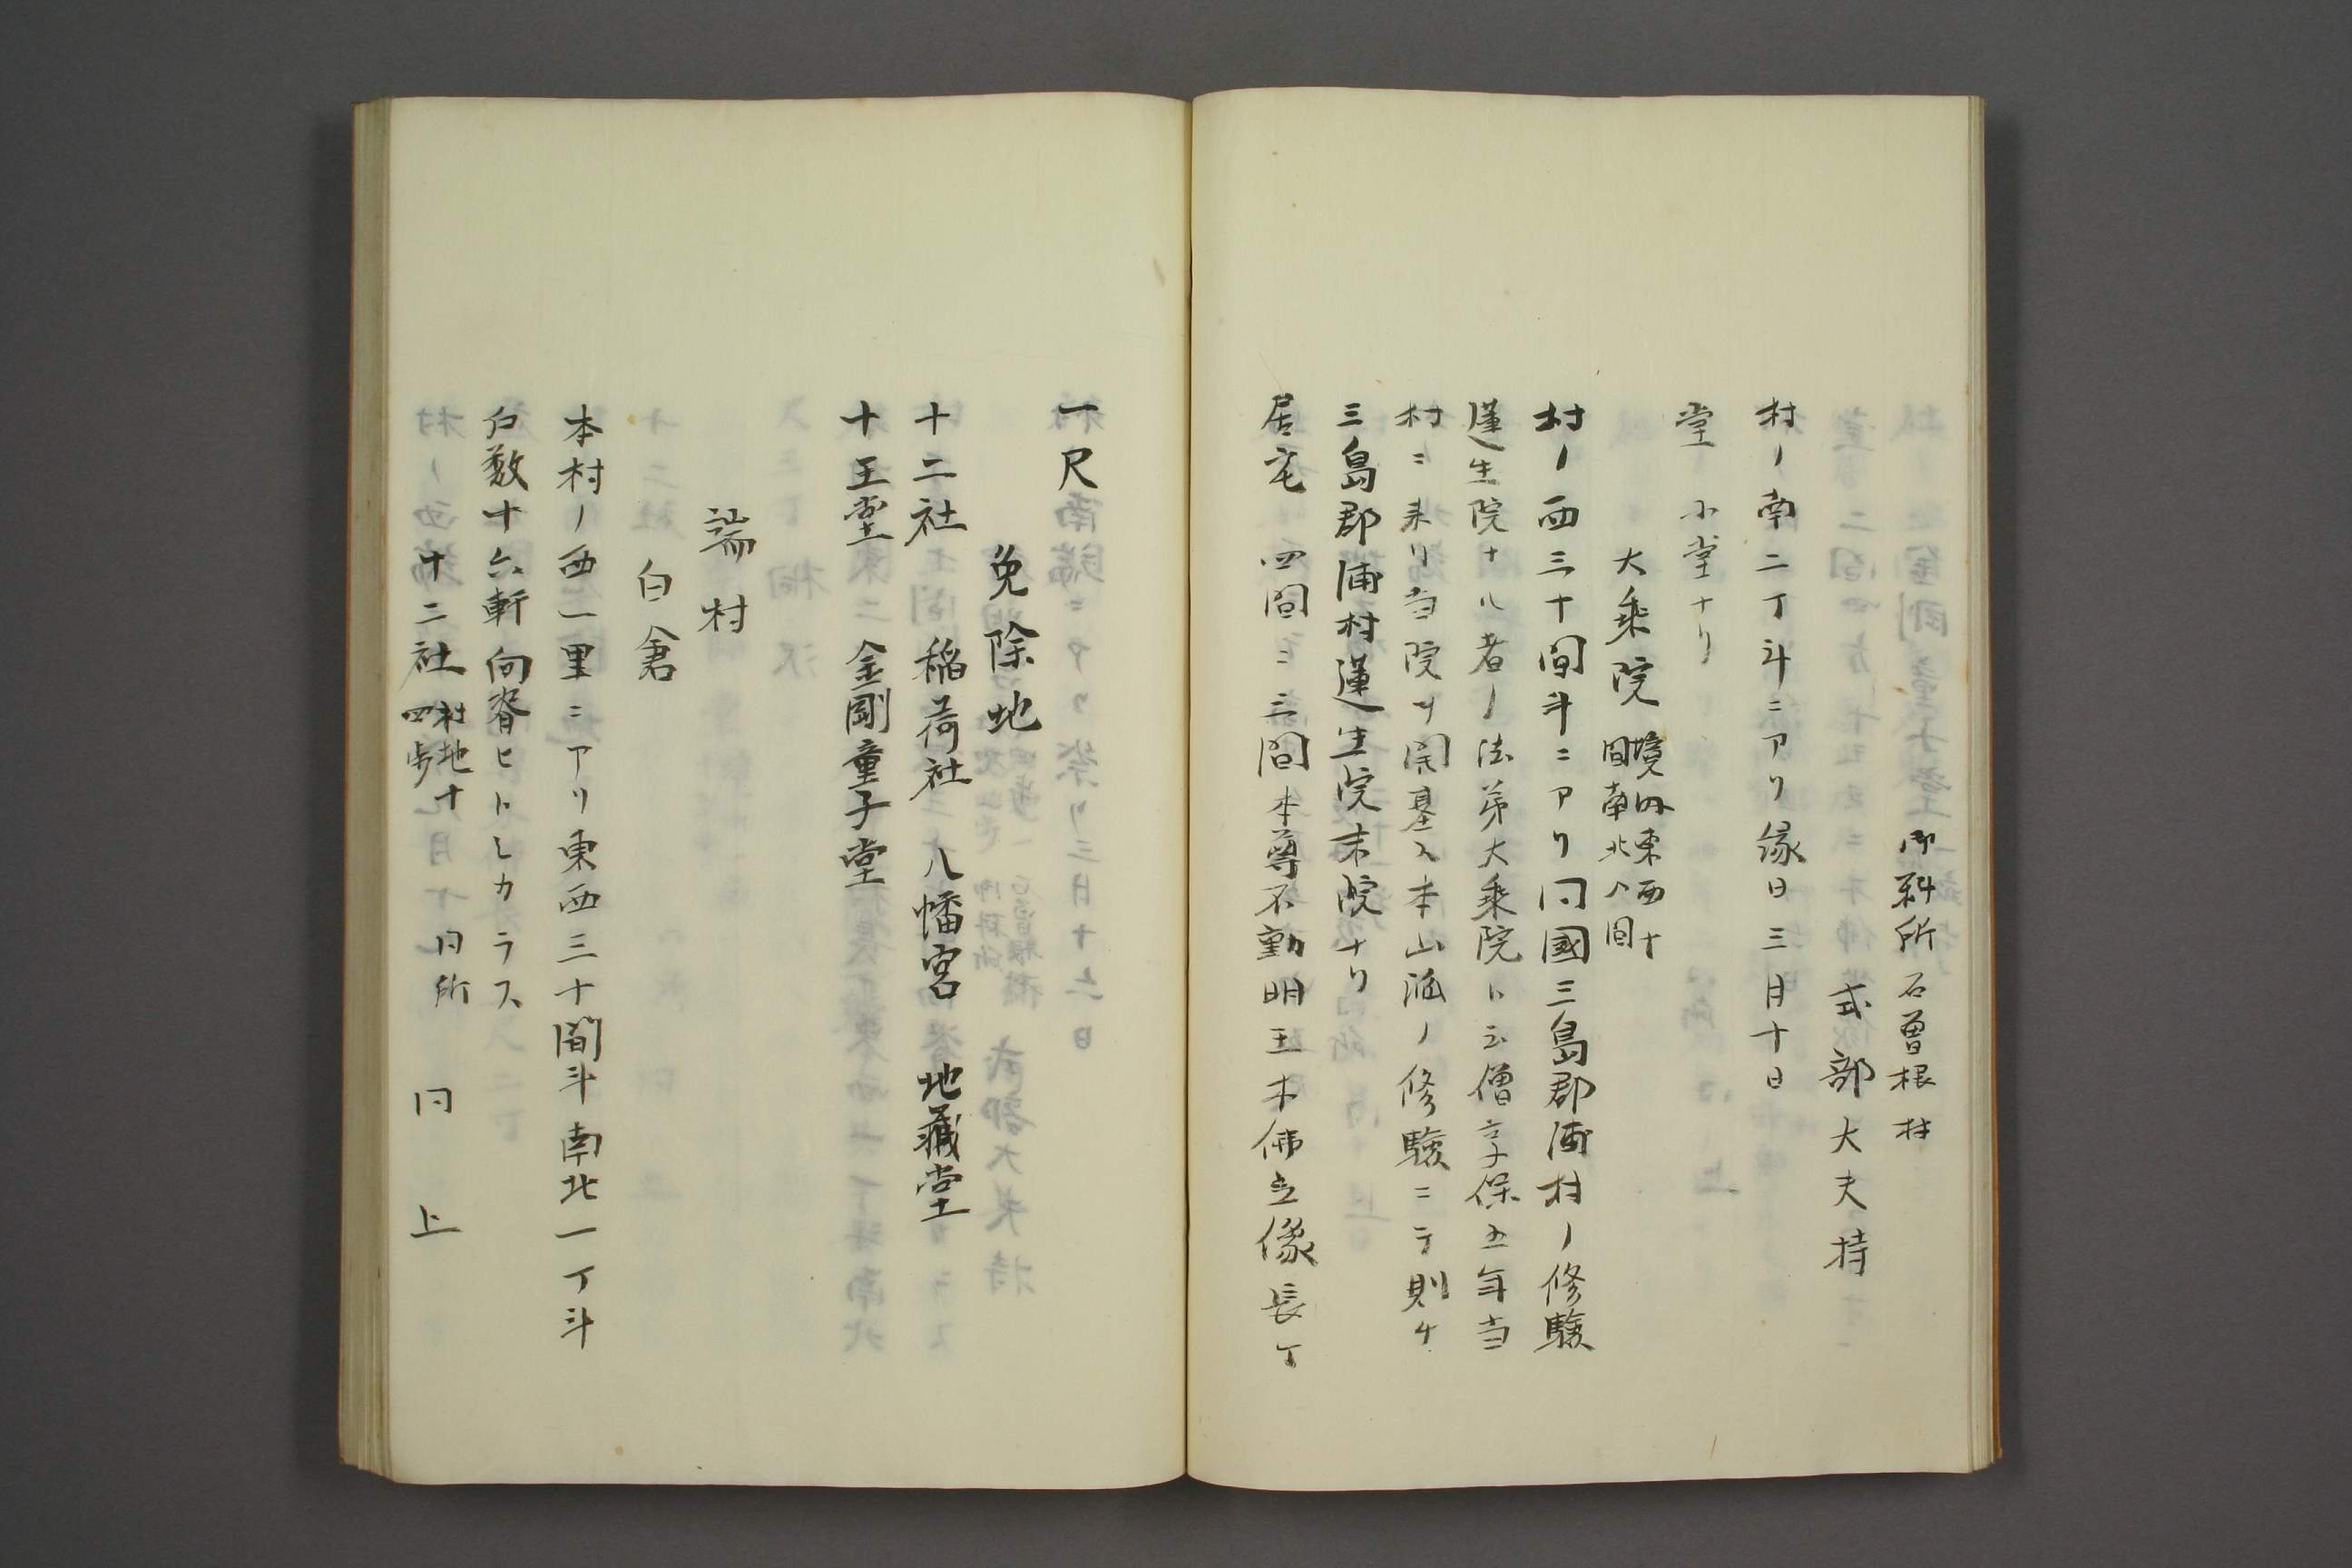 御料所石曽根村
式部大夫持
村ノ南二丁斗ニアリ縁日三月十日
堂 小堂ナリ
大乘院 境内東西十間南北八間
村ノ西三十間斗ニアリ同國三島郡浦村ノ修驗
蓮生院ナル者ノ法弟大乘院ト云僧享保五年当
村ニ来リ当院ヲ開基ス本山派ノ修驗ニテ則チ
三島郡浦村蓮生院末院ナリ
居宅 四間ニ三間本尊不動明王木佛立像長丁
一尺
免除地
十二社 稲荷社 八幡宮 地藏堂
十王堂 金剛童子堂
端村
白倉
本村ノ西一里ニアリ東西三十間斗南北一丁斗
戸数十六軒向脊ヒトシカラス
十二社 社地十四歩 同所 同上